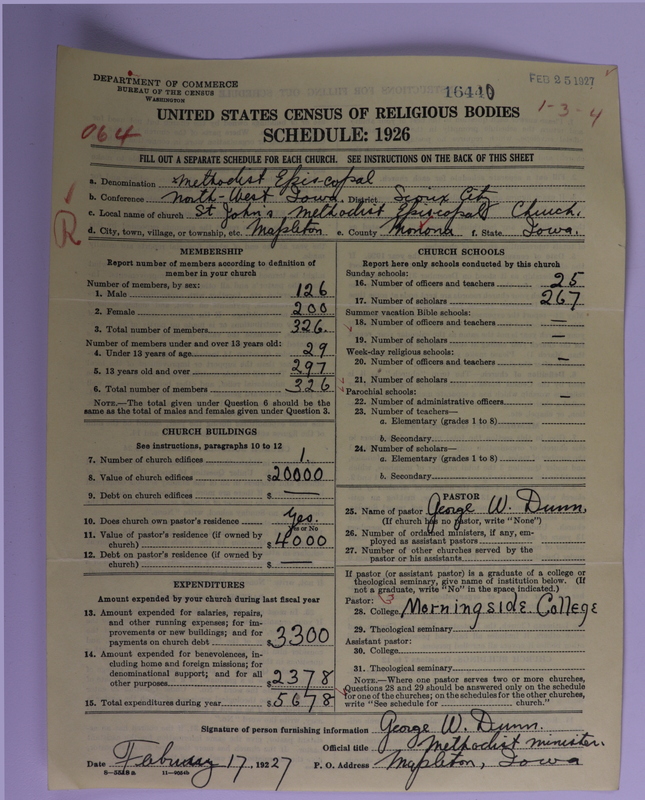 DEPARTMENT OF COMMERCE
BUREAU OF THE CENSUS
WASHINGTON
16440
FEB 25 1927
1-3-4
UNITED STATES CENSUS OF RELIGIOUS BODIES
064
SCHEDULE: 1926
FILL OUT A SEPARATE SCHEDULE FOR EACH CHURCH. SEE INSTRUCTIONS ON THE BACK OF THIS SHEET
a. Denomination Methodist Episcopal
b. Conference North-West Iowa. District Sioux City
c. Local name of church St John's Methodist Episcopal Church.
R
d. City, town, village, or township, etc. Mapleton e. County Monona f. State Iowa.
MEMBERSHIP
Report number of members according to definition of
member in your church
Number of members, by sex:
1. Male 126
2. Female 200
3. Total number of members 326.
Number of members under and over 13 years old:
4. Under 13 years of age 29
5. 13 years old and over 297
6. Total number of members 326
NOTE.—The total given under Question 6 should be the
same as the total of males and females given under Question 3.
CHURCH BUILDINGS
See instructions, paragraphs 10 to 12
7. Number of church edifices 1.
8. Value of church edifices $20000
9. Debt on church edifices $ —
10. Does church own pastor's residence Yes.
Yes or No
11. Value of pastor's residence (if owned by
church) $4000
12. Debt on pastor's residence (if owned by
church) $ —
EXPENDITURES
Amount expended by your church during last fiscal year
13. Amount expended for salaries, repairs,
and other running expenses; for im-
provements or new buildings; and for
payments on church debt $3300
14. Amount expended for benevolences, in-
cluding home and foreign missions; for
denominational support; and for all
other purposes $2378
15. Total expenditures during year $5678
CHURCH SCHOOLS
Report here only schools conducted by this church
Sunday schools:
16. Number of officers and teachers 25
17. Number of scholars 267
Summer vacation Bible schools:
18. Number of officers and teachers —
19. Number of scholars —
Week-day religious schools:
20. Number of officers and teachers —
21. Number of scholars
Parochial schools:
22. Number of administrative officers —
23. Number of teachers—
a. Elementary (grades 1 to 8)
b. Secondary
24. Number of scholars—
a. Elementary (grades 1 to 8)
b. Secondary
PASTOR
25. Name of pastor George W. Dunn,
(If church has no pastor, write "None")
26. Number of ordained ministers, if any, em-
ployed as assistant pastors
27. Number of other churches served by the
pastor or his assistants
If pastor (or assistant pastor) is a graduate of a college or
theological seminary, give name of institution below. (If
not a graduate, write "No" in the space indicated.)
Pastor:
28. College Morningside College
29. Theological seminary
Assistant pastor:
30. College
31. Theological seminary
NOTE.—Where one pastor serves two or more churches,
Questions 28 and 29 should be answered only on the schedule
for one of the churches; on the schedules for the other churches,
write "See schedule for church."
Signature of person furnishing information George W. Dunn.
Official title Methodist minister.
Date Febuary 17, 1927 P. O. Address Mapleton, Iowa
11—9054b